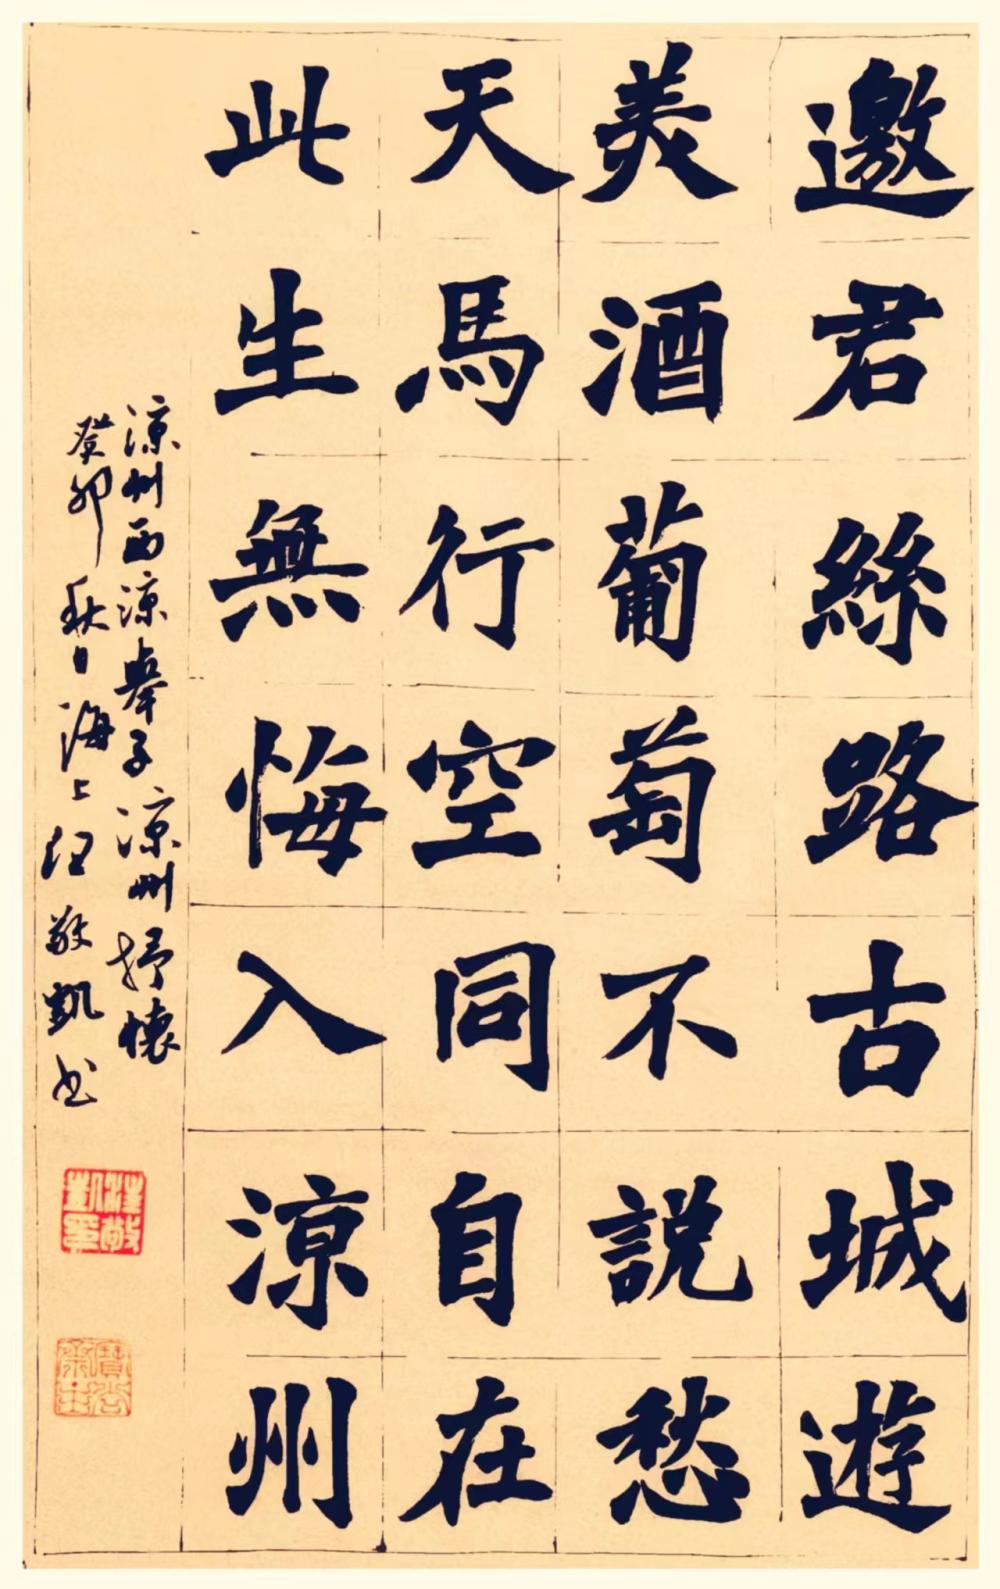 邀君絲路古城遊
美酒葡萄不說愁
天馬行空同自在
此生無悔入涼州
涼州西涼舉子涼州抒懷
癸卯秋日海上汪敬凱书
汪敬凱印